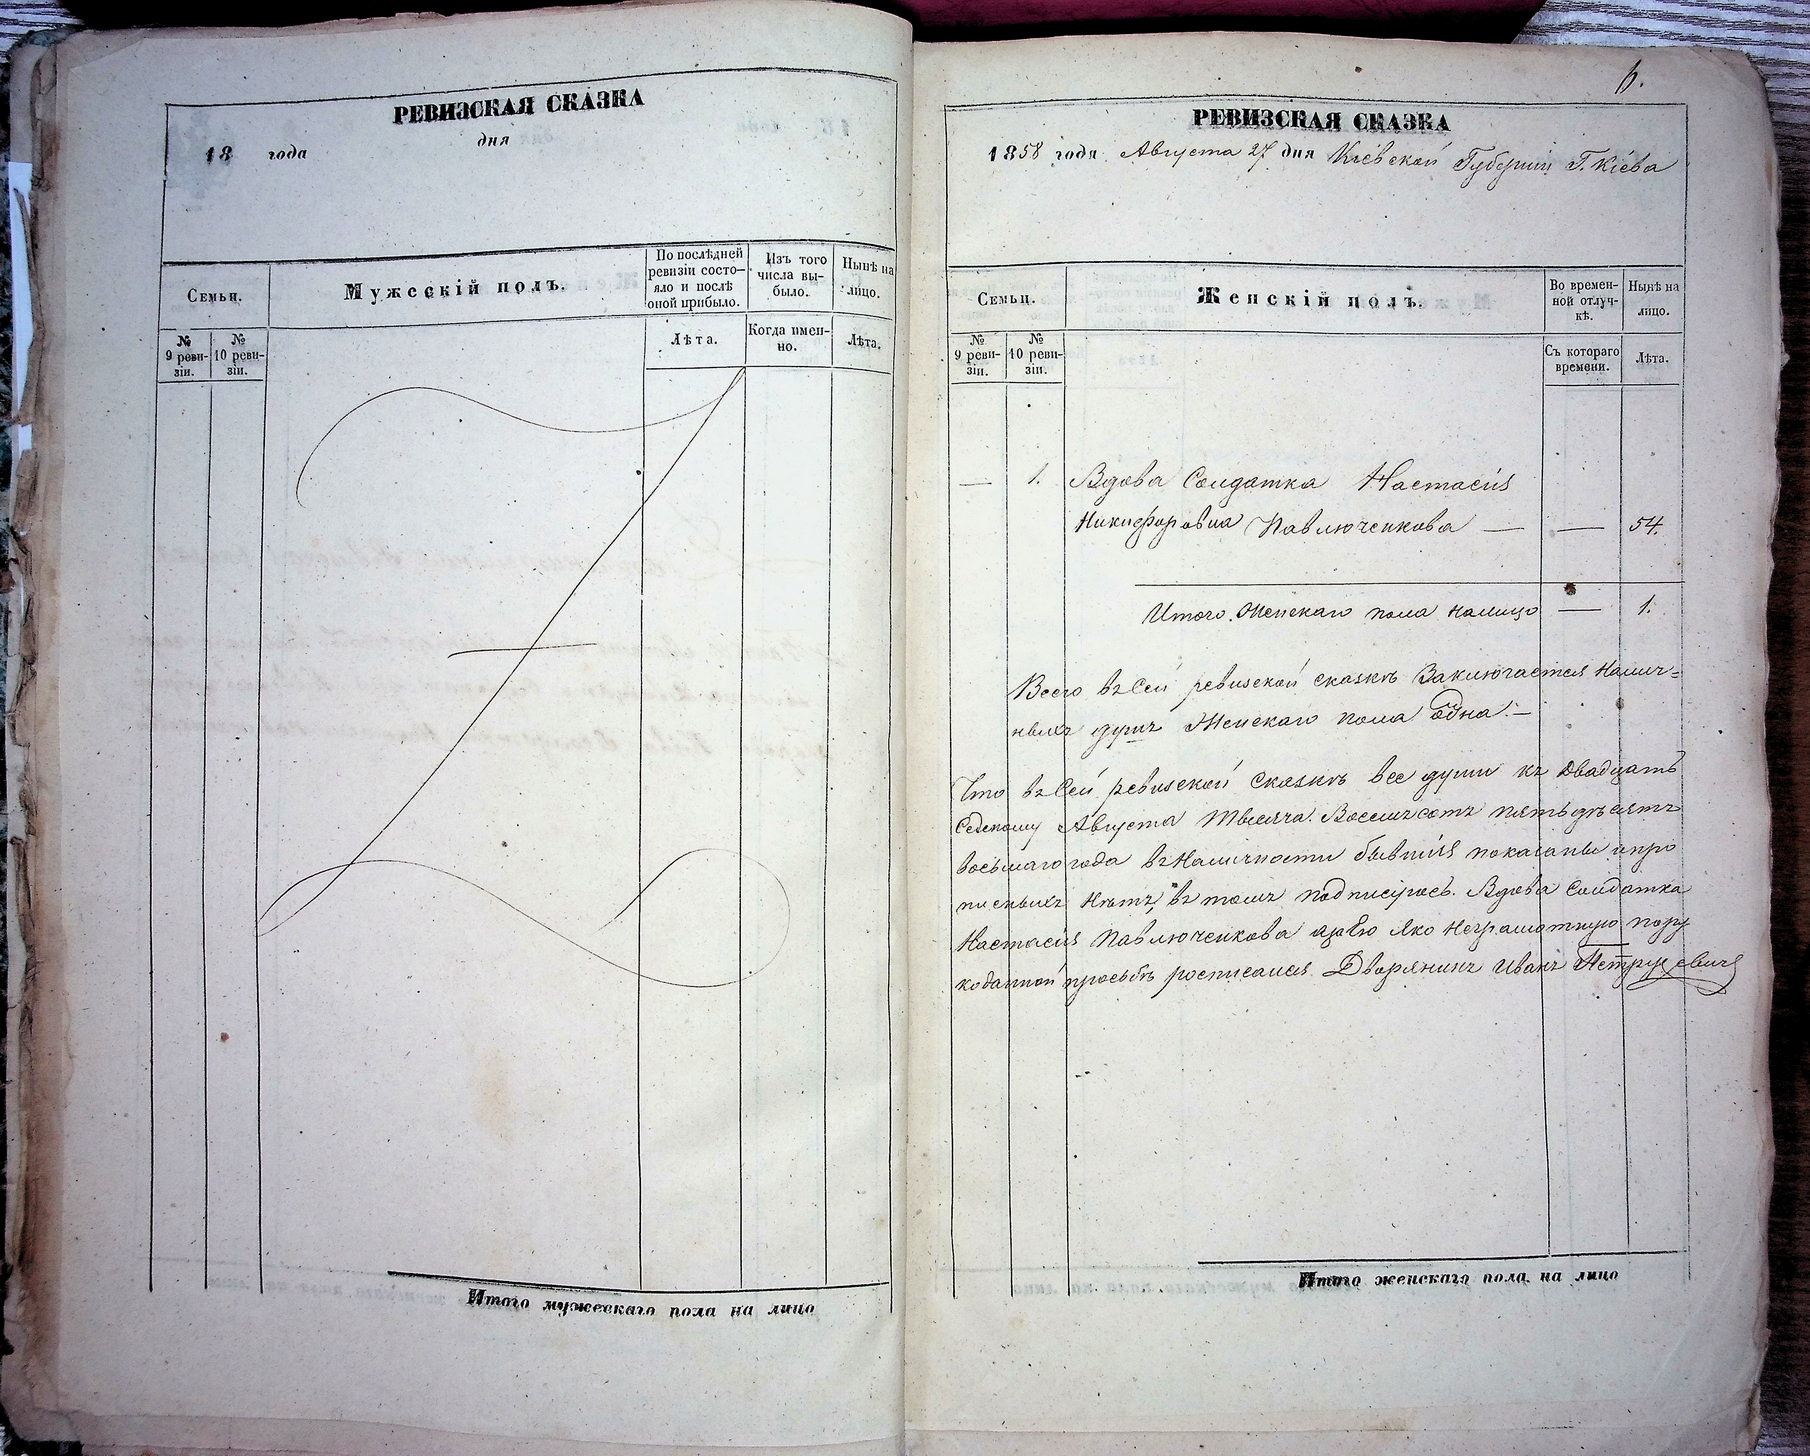 РЕВИЗСКАЯ СКАЗКА
18 года дня
Семьи.
Мужескій полъ.
По послѣдней ревизіи состо-
яло и послѣ
оной прибыло.
Изъ того
числа вы-
было.
Нынѣ на
лицо.
№
9 реви-
зіи.
№
10 реви-
зіи.
Лѣта.
Когда имен-
но.
Лѣта.
Итого мужескаго пола на лицо
6.
РЕВИЗСКАЯ СКАЗКА
1858 года Августа 27 дня Кіевской Губерніи Г. Кіева
Семьи.
Женскій полъ.
Во времен-
ной отлуч-
кѣ.
Нынѣ на
лицо.
№
9 реви-
зіи.
№
10 реви-
зіи.
Съ котораго
времени.
Лѣта.
— 1. Вдова Солдатка Настасія
Никифоровна Павлюченкова — — 54.
Итого Женскаго пола налицо — 1.
Всего въ Сей ревизской сказкѣ Заключается Налич=
ныхъ душъ Женскаго пола одна.—
Что въ Сей ревизской Сказкѣ все души къ Двадцать
Седьмому Августа Тысяча Восемьсотъ пятьдѣсятъ
восьмаго года въ Наличности бывшія показаны и про
писныхъ Нѣтъ, въ томъ подписуюсь. Вдова Солдатка
Настасія Павлюченкова а за Ею Яко Неграмотную пору
коданной просьбѣ росписался Дворянинъ Иванъ Петрусевичъ
Итого женскаго пола на лицо